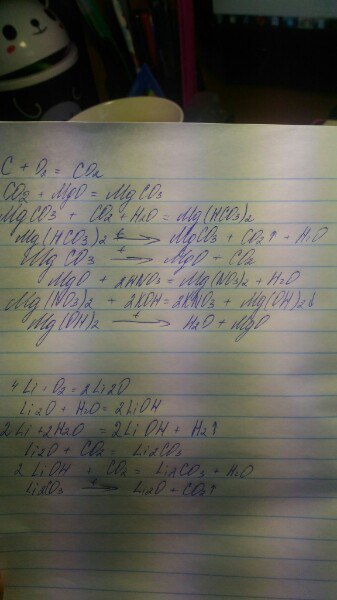 C + O₂ = CO₂
CO₂ + MgO = MgCO₃
MgCO₃ + CO₂ + H₂O = Mg(HCO₃)₂
Mg(HCO₃)₂ —t→ MgCO₃ + CO₂↑ + H₂O
MgCO₃ —t→ MgO + CO₂
MgO + 2HNO₃ = Mg(NO₃)₂ + H₂O
Mg(NO₃)₂ + 2KOH = 2KNO₃ + Mg(OH)₂↓
Mg(OH)₂ —t→ H₂O + MgO
4Li + O₂ = 2Li₂O
Li₂O + H₂O = 2LiOH
2Li + 2H₂O = 2LiOH + H₂↑
Li₂O + CO₂ = Li₂CO₃
2LiOH + CO₂ = Li₂CO₃ + H₂O
Li₂CO₃ —t→ Li₂O + CO₂↑